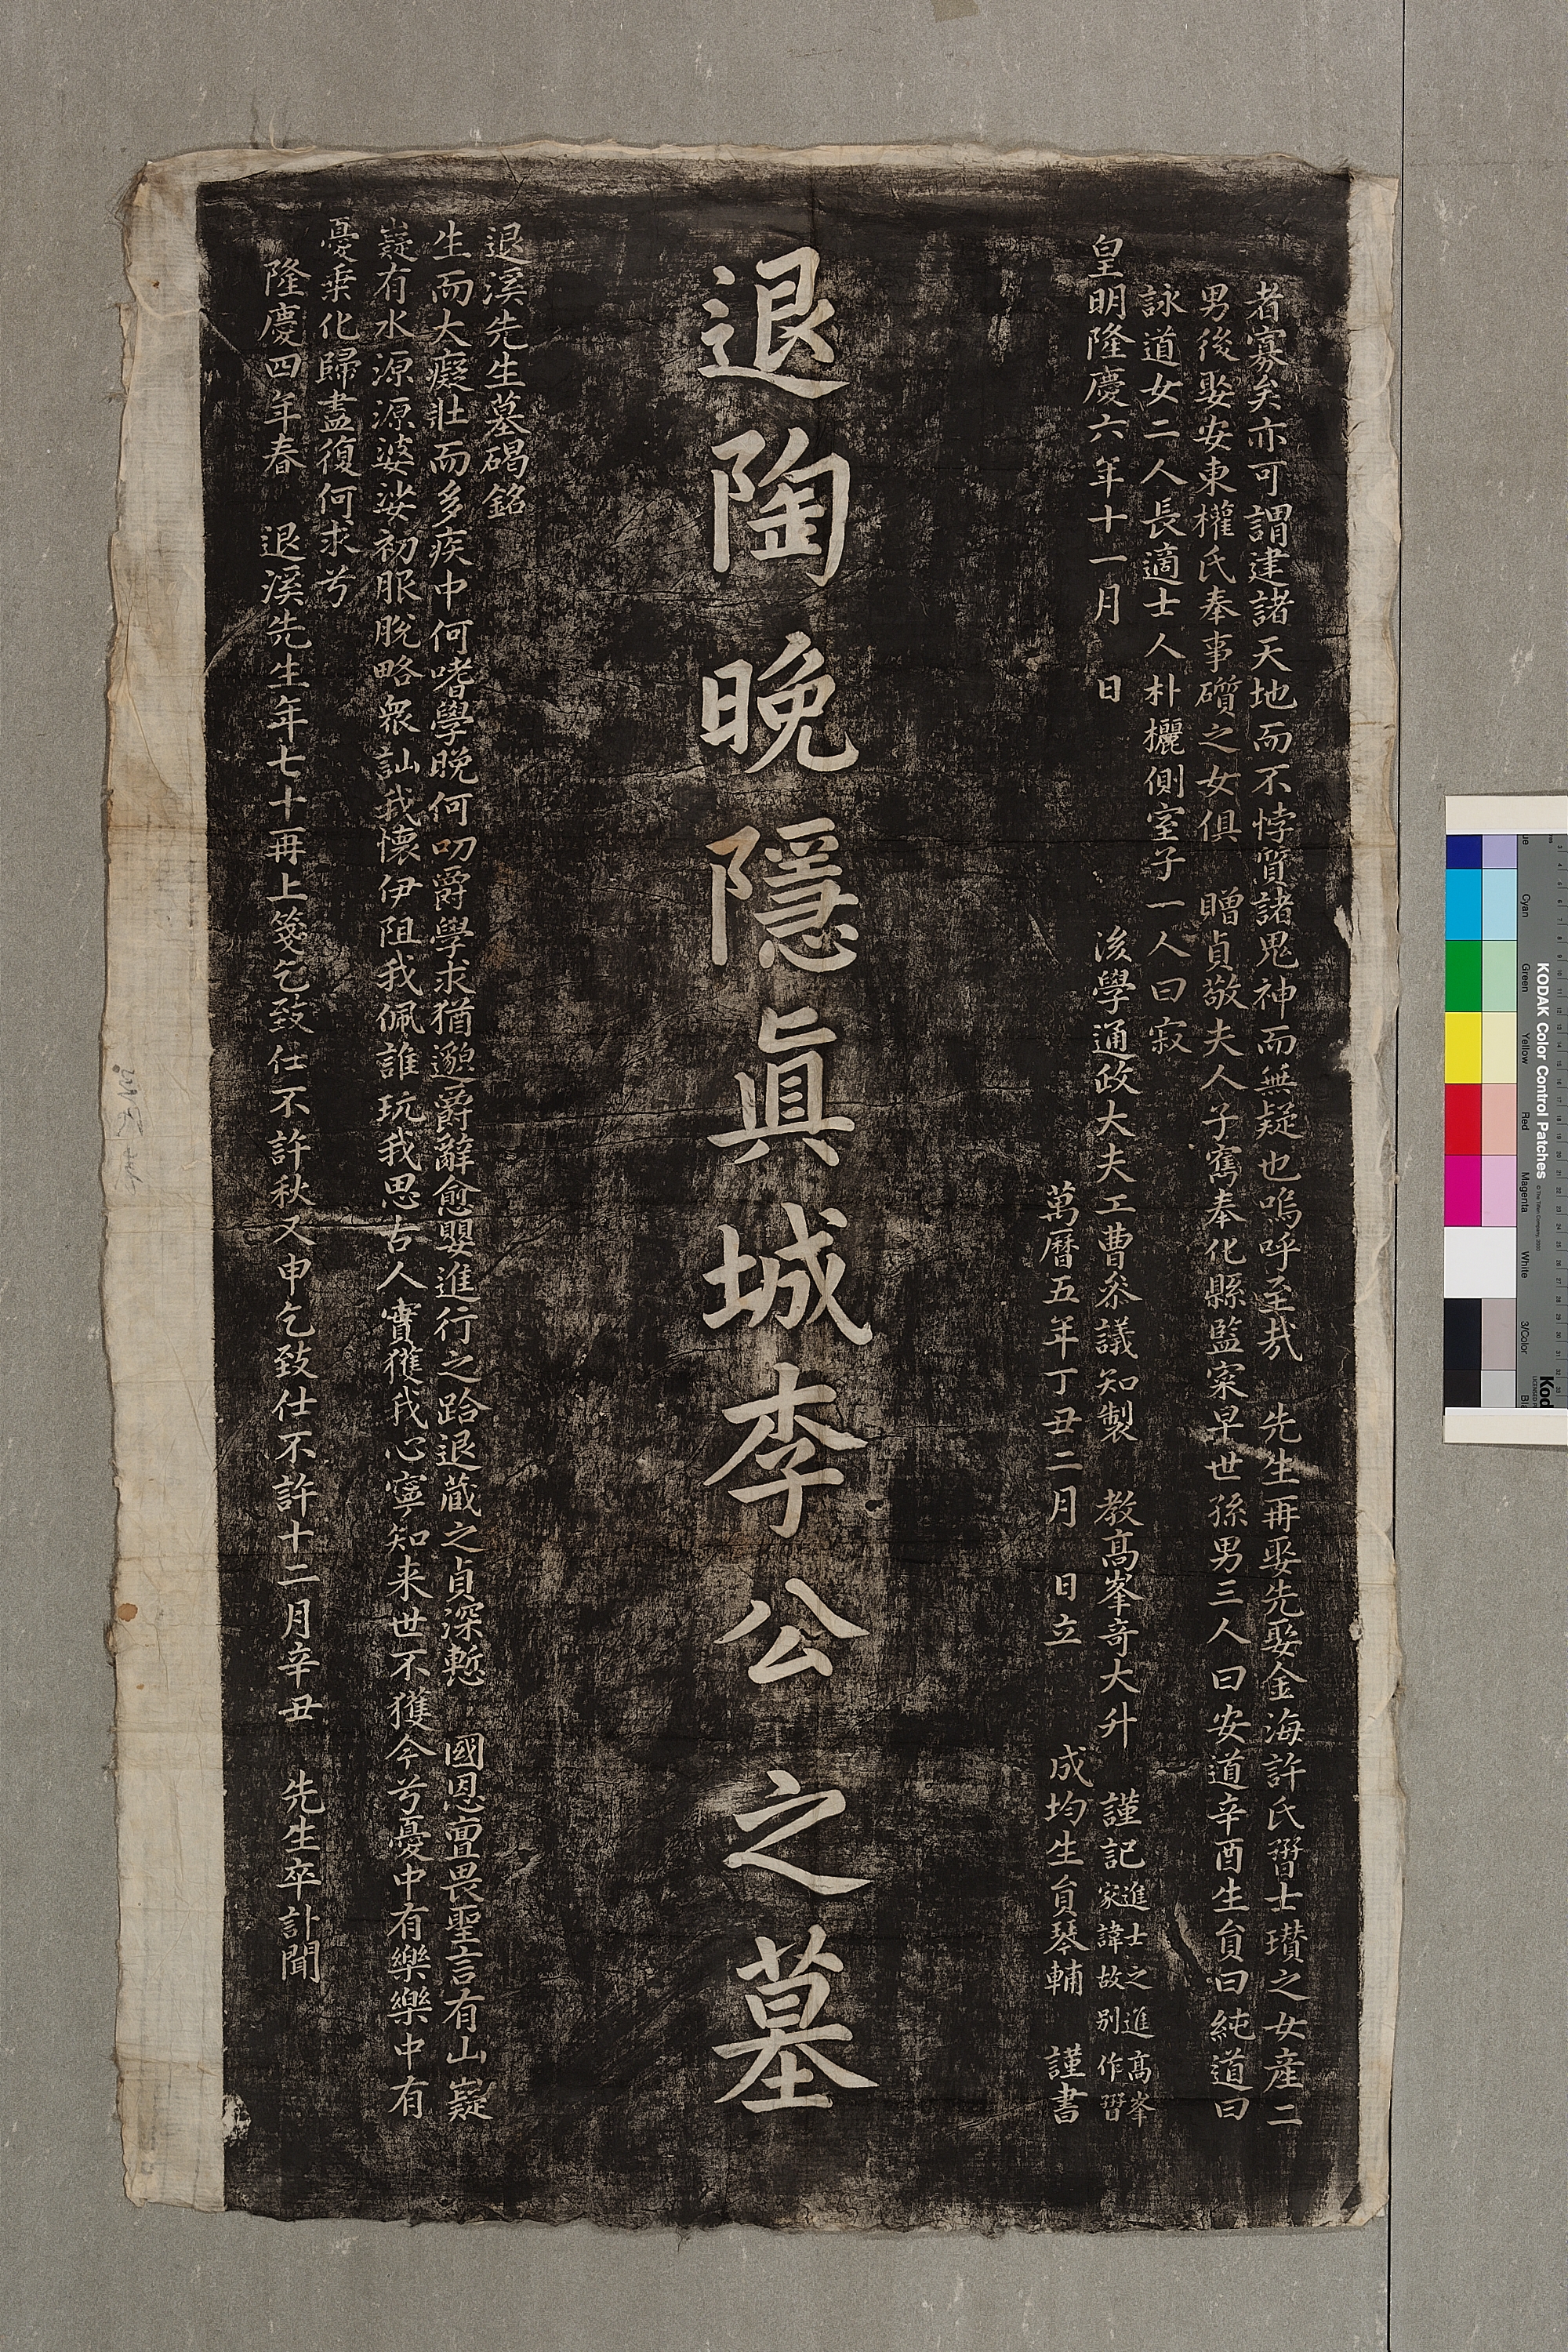 者寡矣亦可謂建諸天地而不悖質諸鬼神而無疑也嗚呼至哉 先生再娶先娶金海許氏晉士瓚之女産二
男後娶安東權氏奉事礩之女俱 贈貞敬夫人子寯奉化縣監寀早世孫男三人曰安道辛酉生員曰純道曰
詠道女二人長適士人朴欐側室子一人曰寂
皇明隆慶六年十一月 日 後學通政大夫工曹叅議知製 教高峯奇大升 謹記 進士之進高峯
家諱故別作晉
萬曆五年丁丑二月 日立 成均生員琴輔 謹書
退陶晚隱眞城李公之墓
退溪先生墓碣銘
生而大癡壯而多疾中何嗜學晚何叨爵學求猶邈爵辭愈嬰進行之跲退藏之貞深慙 國恩亶畏聖言有山嶷
嶷有水源源婆娑初服脫略衆訕我懷伊阻我佩誰玩我思古人實獲我心寧知来世不獲今兮憂中有樂樂中有
憂乘化歸盡復何求兮
隆慶四年春 退溪先生年七十再上箋乞致仕不許秋又申乞致仕不許十二月辛丑 先生卒訃聞
KODAK Color Control Patches
Cyan Green Yellow Red Magenta White 3/Color